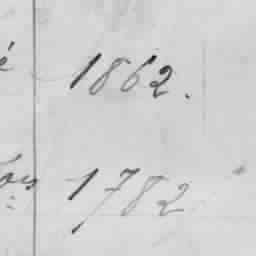 é 1862.
1782